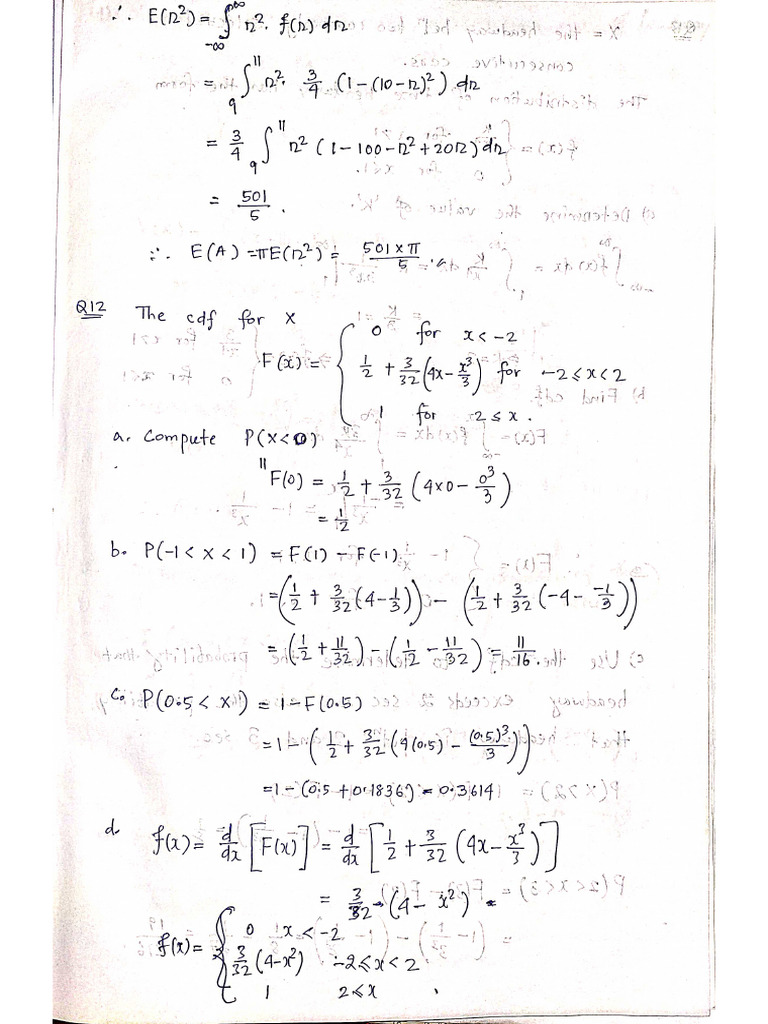 ∴ E(r²) = ∫_{-∞}^{∞} r². f(r) dr
= ∫_9^11 r². 3/4 (1-(10-r)²) dr
= 3/4 ∫_9^11 r² (1-100-r²+20r) dr
= 501/5 .
∴ E(A) = πE(r²) = 501×π/5 .
Q12 The cdf for X
F(x) = { 0 for x<-2
1/2 + 3/32 (4x - x³/3) for -2≤x<2
1 for 2≤x.
a. Compute P(X<0)
F(0) = 1/2 + 3/32 (4×0 - 0³/3)
= 1/2
b. P(-1<X<1) = F(1) - F(-1)
= (1/2 + 3/32 (4 - 1/3)) - (1/2 + 3/32 (-4 - -1/3))
= (1/2 + 11/32) - (1/2 - 11/32) = 11/16.
c. P(0.5<X) = 1 - F(0.5)
= 1 - (1/2 + 3/32 (4(0.5) - (0.5)³/3))
= 1 - (0.5+0.1836) = 0.3614
d. f(x) = d/dx [F(x)] = d/dx [1/2 + 3/32 (4x - x³/3)]
= 3/32 (4-x²)
f(x) = { 0 x<-2
3/32 (4-x²) -2≤x<2
1 2≤x .